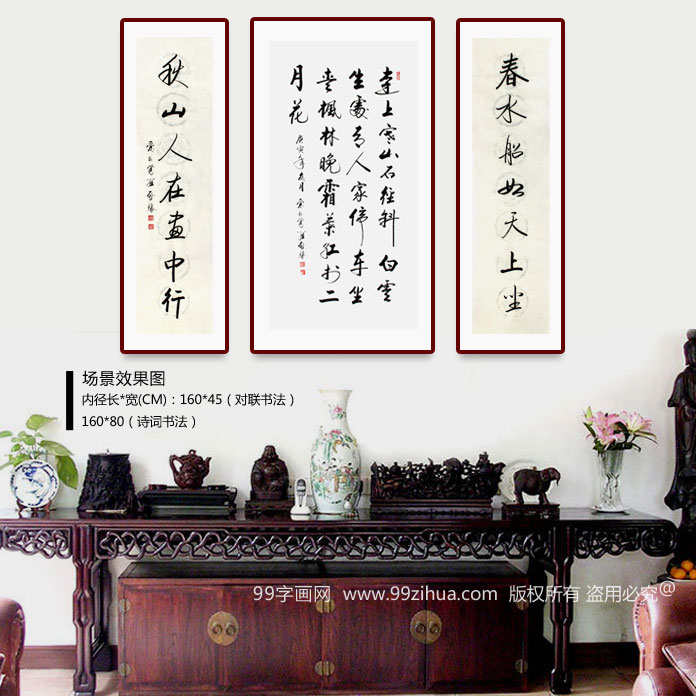 春水船如天上坐
遠上寒山石徑斜白雲
生處有人家停車坐
愛楓林晚霜葉紅於二
月花
秋山人在畫中行
场景效果图
内径长*宽(CM)：160*45（对联书法）
160*80（诗词书法）
99字画网 www.99zihua.com 版权所有 盗用必究@